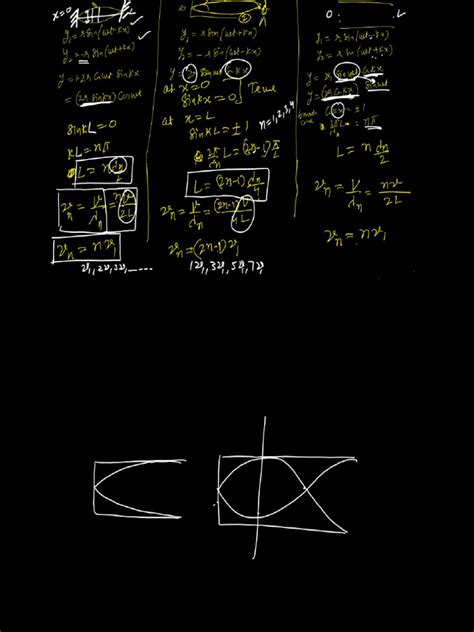 x=0
y₁ = r sin(ωt-kx)
y₂ = -r sin(ωt+kx)
y = +2r cosωt sinkx
= (2r sinkx) cosωt
sinkL = 0
kL = nπ
L = n λₙ/2
νₙ = V/λₙ = nv/2L
νₙ = nν₁
ν₁, 2ν, 3ν, ----
y₁ = r sin(ωt-kx)
y₂ = -r sin(ωt+kx)
at x=0
sinkx = 0, True
at x = L
sinkL = ±1
n=1,2,3,4
2π/λₙ L = (2n-1) π/2
L = (2n-1) λₙ/4
νₙ = V/λₙ = (2n-1) V/4L
νₙ = (2n-1) ν₁
1ν, 3ν, 5ν, 7ν
0
L
y₁ = r sin(ωt-kx)
y₂ = r sin(ωt+kx)
y = 2r sinωt coskx
y = (2r coskx) sinωt
coskx = ±1
2π/λₙ L = nπ
L = n λₙ/2
νₙ = V/λₙ = nv/2L
νₙ = nν₁